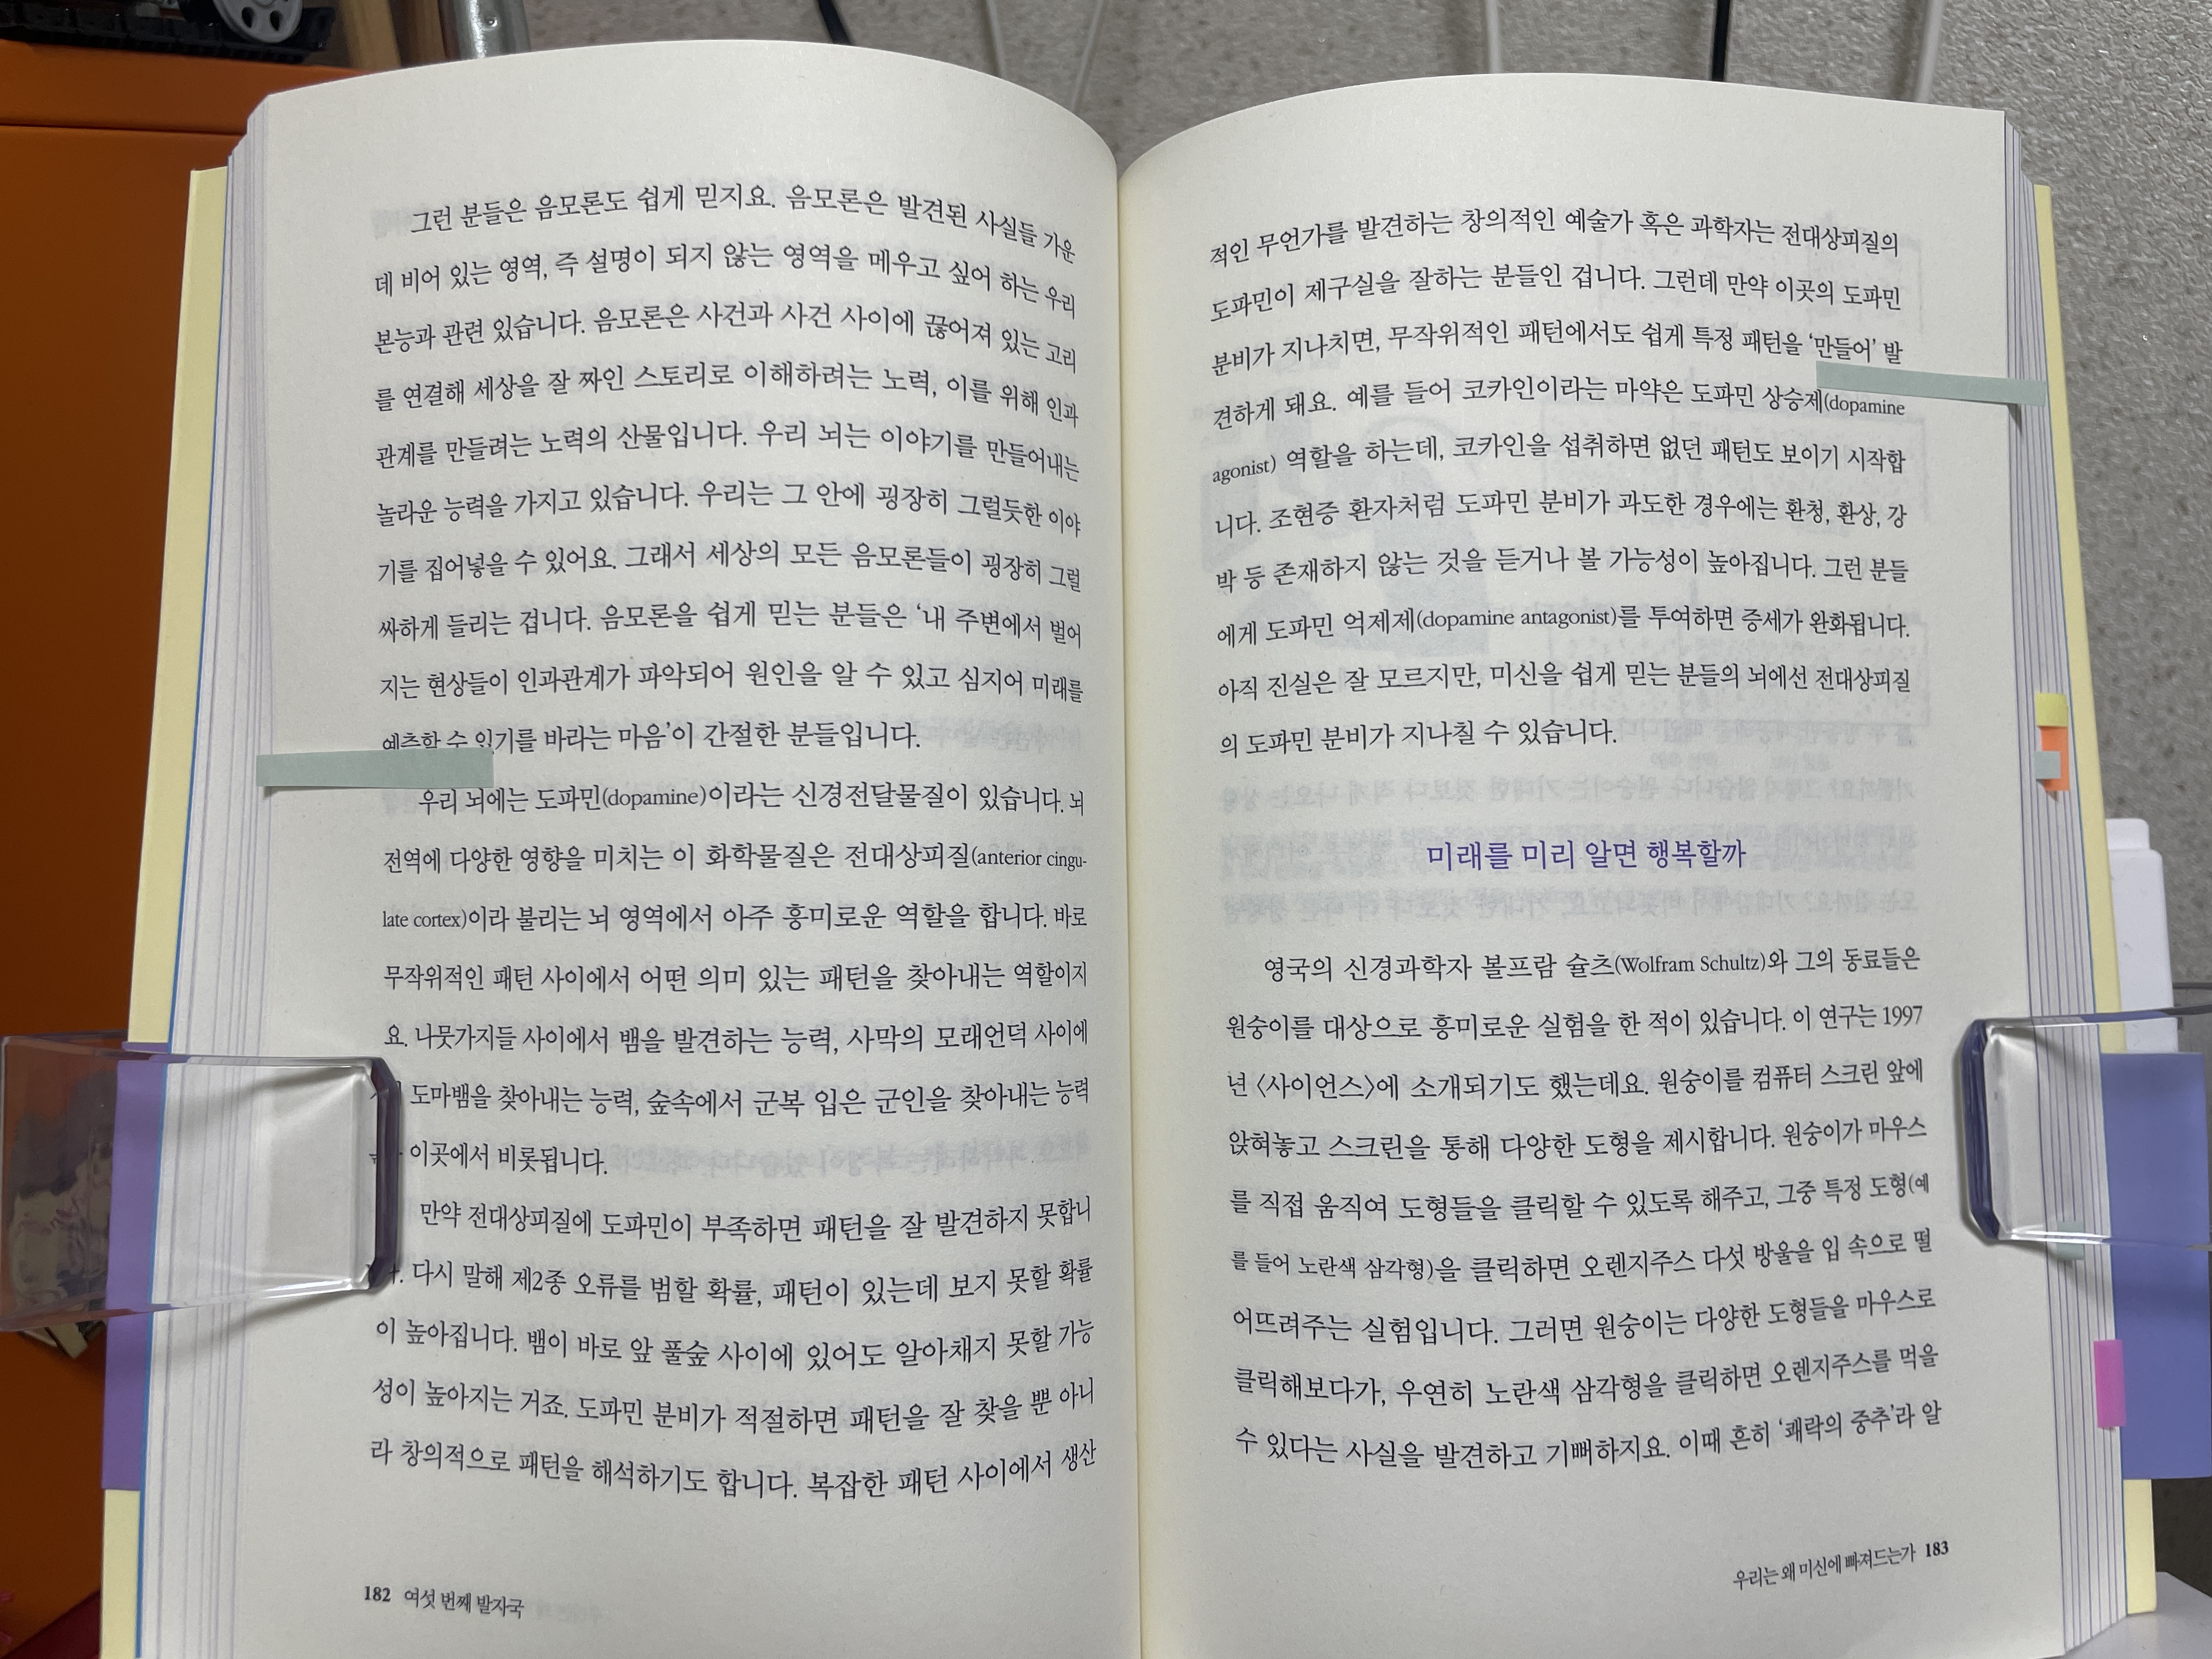 그런 분들은 음모론도 쉽게 믿지요. 음모론은 발견된 사실들 가운
데 비어 있는 영역, 즉 설명이 되지 않는 영역을 메우고 싶어 하는 우리
본능과 관련 있습니다. 음모론은 사건과 사건 사이에 끊어져 있는 고리
를 연결해 세상을 잘 짜인 스토리로 이해하려는 노력, 이를 위해 인과
관계를 만들려는 노력의 산물입니다. 우리 뇌는 이야기를 만들어내는
놀라운 능력을 가지고 있습니다. 우리는 그 안에 굉장히 그럴듯한 이야
기를 집어넣을 수 있어요. 그래서 세상의 모든 음모론들이 굉장히 그럴
싸하게 들리는 겁니다. 음모론을 쉽게 믿는 분들은 ‘내 주변에서 벌어
지는 현상들이 인과관계가 파악되어 원인을 알 수 있고 심지어 미래를
예측할 수 있기를 바라는 마음’이 간절한 분들입니다.
우리 뇌에는 도파민(dopamine)이라는 신경전달물질이 있습니다. 뇌
전역에 다양한 영향을 미치는 이 화학물질은 전대상피질(anterior cingu-
late cortex)이라 불리는 뇌 영역에서 아주 흥미로운 역할을 합니다. 바로
무작위적인 패턴 사이에서 어떤 의미 있는 패턴을 찾아내는 역할이지
요. 나뭇가지들 사이에서 뱀을 발견하는 능력, 사막의 모래언덕 사이에
도마뱀을 찾아내는 능력, 숲속에서 군복 입은 군인을 찾아내는 능력
이곳에서 비롯됩니다.
만약 전대상피질에 도파민이 부족하면 패턴을 잘 발견하지 못합니
다시 말해 제2종 오류를 범할 확률, 패턴이 있는데 보지 못할 확률
이 높아집니다. 뱀이 바로 앞 풀숲 사이에 있어도 알아채지 못할 가능
성이 높아지는 거죠. 도파민 분비가 적절하면 패턴을 잘 찾을 뿐 아니
라 창의적으로 패턴을 해석하기도 합니다. 복잡한 패턴 사이에서 생산
182 여섯 번째 발자국
적인 무언가를 발견하는 창의적인 예술가 혹은 과학자는 전대상피질의
도파민이 제구실을 잘하는 분들인 겁니다. 그런데 만약 이곳의 도파민
분비가 지나치면, 무작위적인 패턴에서도 쉽게 특정 패턴을 ‘만들어’ 발
견하게 돼요. 예를 들어 코카인이라는 마약은 도파민 상승제(dopamine
agonist) 역할을 하는데, 코카인을 섭취하면 없던 패턴도 보이기 시작합
니다. 조현증 환자처럼 도파민 분비가 과도한 경우에는 환청, 환상, 강
박 등 존재하지 않는 것을 듣거나 볼 가능성이 높아집니다. 그런 분들
에게 도파민 억제제(dopamine antagonist)를 투여하면 증세가 완화됩니다.
아직 진실은 잘 모르지만, 미신을 쉽게 믿는 분들의 뇌에선 전대상피질
의 도파민 분비가 지나칠 수 있습니다.
미래를 미리 알면 행복할까
영국의 신경과학자 볼프람 슐츠(Wolfram Schultz)와 그의 동료들은
원숭이를 대상으로 흥미로운 실험을 한 적이 있습니다. 이 연구는 1997
년 〈사이언스〉에 소개되기도 했는데요. 원숭이를 컴퓨터 스크린 앞에
앉혀놓고 스크린을 통해 다양한 도형을 제시합니다. 원숭이가 마우스
를 직접 움직여 도형들을 클릭할 수 있도록 해주고, 그중 특정 도형(예
를 들어 노란색 삼각형)을 클릭하면 오렌지주스 다섯 방울을 입 속으로 떨
어뜨려주는 실험입니다. 그러면 원숭이는 다양한 도형들을 마우스로
클릭해보다가, 우연히 노란색 삼각형을 클릭하면 오렌지주스를 먹을
수 있다는 사실을 발견하고 기뻐하지요. 이때 흔히 ‘쾌락의 중추’라 알
우리는 왜 미신에 빠져드는가 183